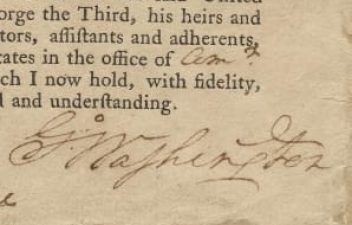 United
orge the Third, his heirs and
tors, aſſiſtants and adherents,
tates in the office of Com
ch I now hold, with fidelity,
l and underſtanding.
Go Washington